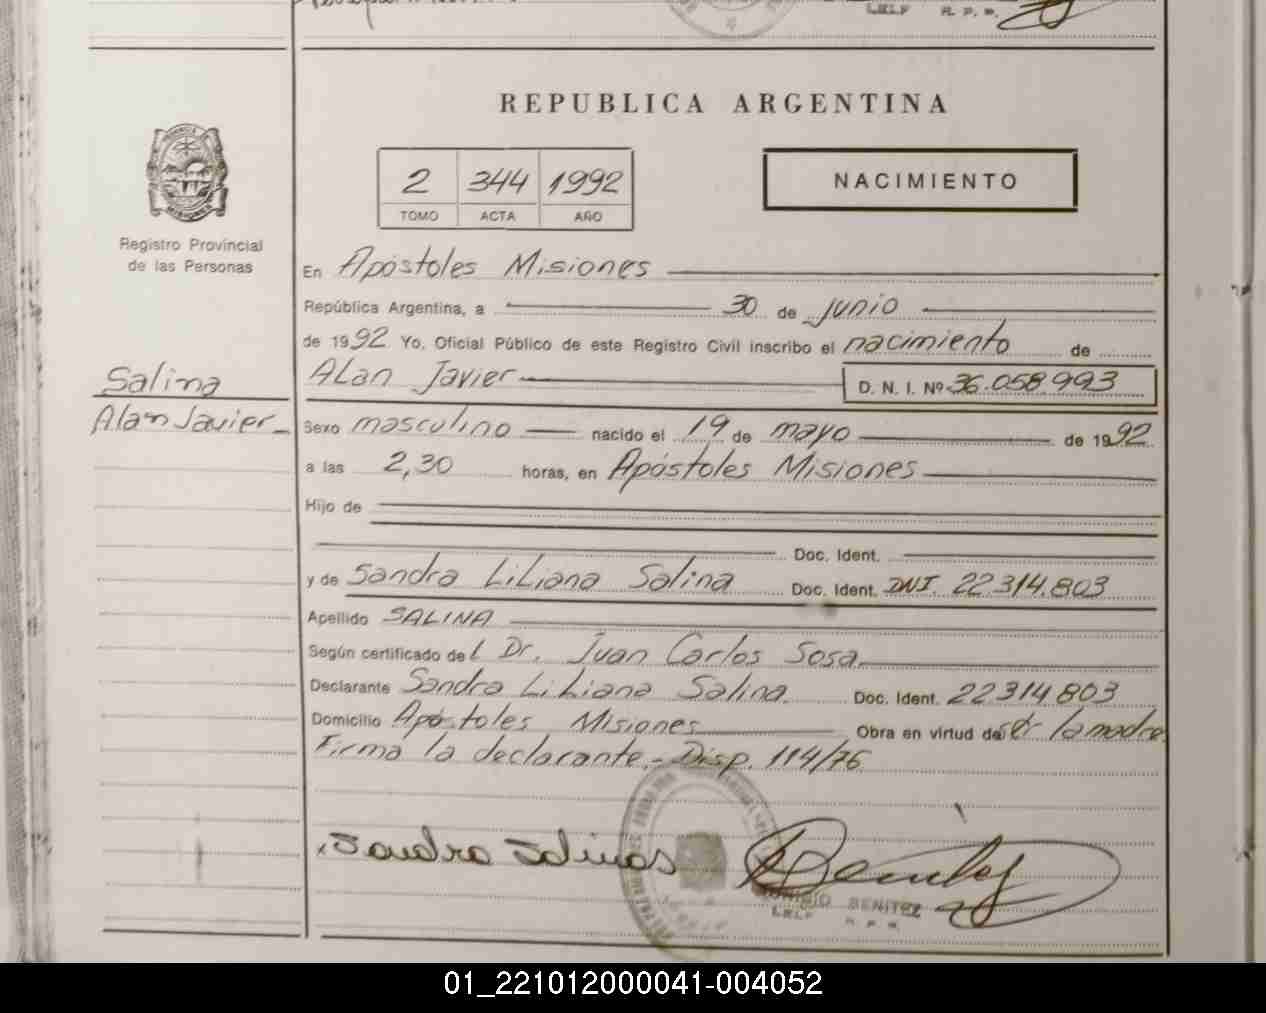 REPUBLICA ARGENTINA
2 344 1992
TOMO ACTA AÑO
NACIMIENTO
PROVINCIA
MISIONES
Registro Provincial
de las Personas
Salina
Alan Javier
En Apóstoles Misiones
República Argentina, a 30 de junio
de 1992 Yo, Oficial Público de este Registro Civil inscribo el nacimiento de
Alan Javier D. N. I. Nº 36.058.993
Sexo masculino nacido el 19 de mayo de 1992
a las 2,30 horas, en Apóstoles Misiones
Hijo de
Doc. Ident.
y de Sandra Liliana Salina Doc. Ident. DNI. 22.314.803
Apellido SALINA
Según certificado del Dr. Juan Carlos Sosa
Declarante Sandra Liliana Salina Doc. Ident. 22314.803
Domicilio Apóstoles Misiones Obra en virtud de ser la madre
Firma la declarante.- Disp. 114/76
Sandra Salinas
Benitez
BENITEZ
R. P. P.
01_221012000041-004052